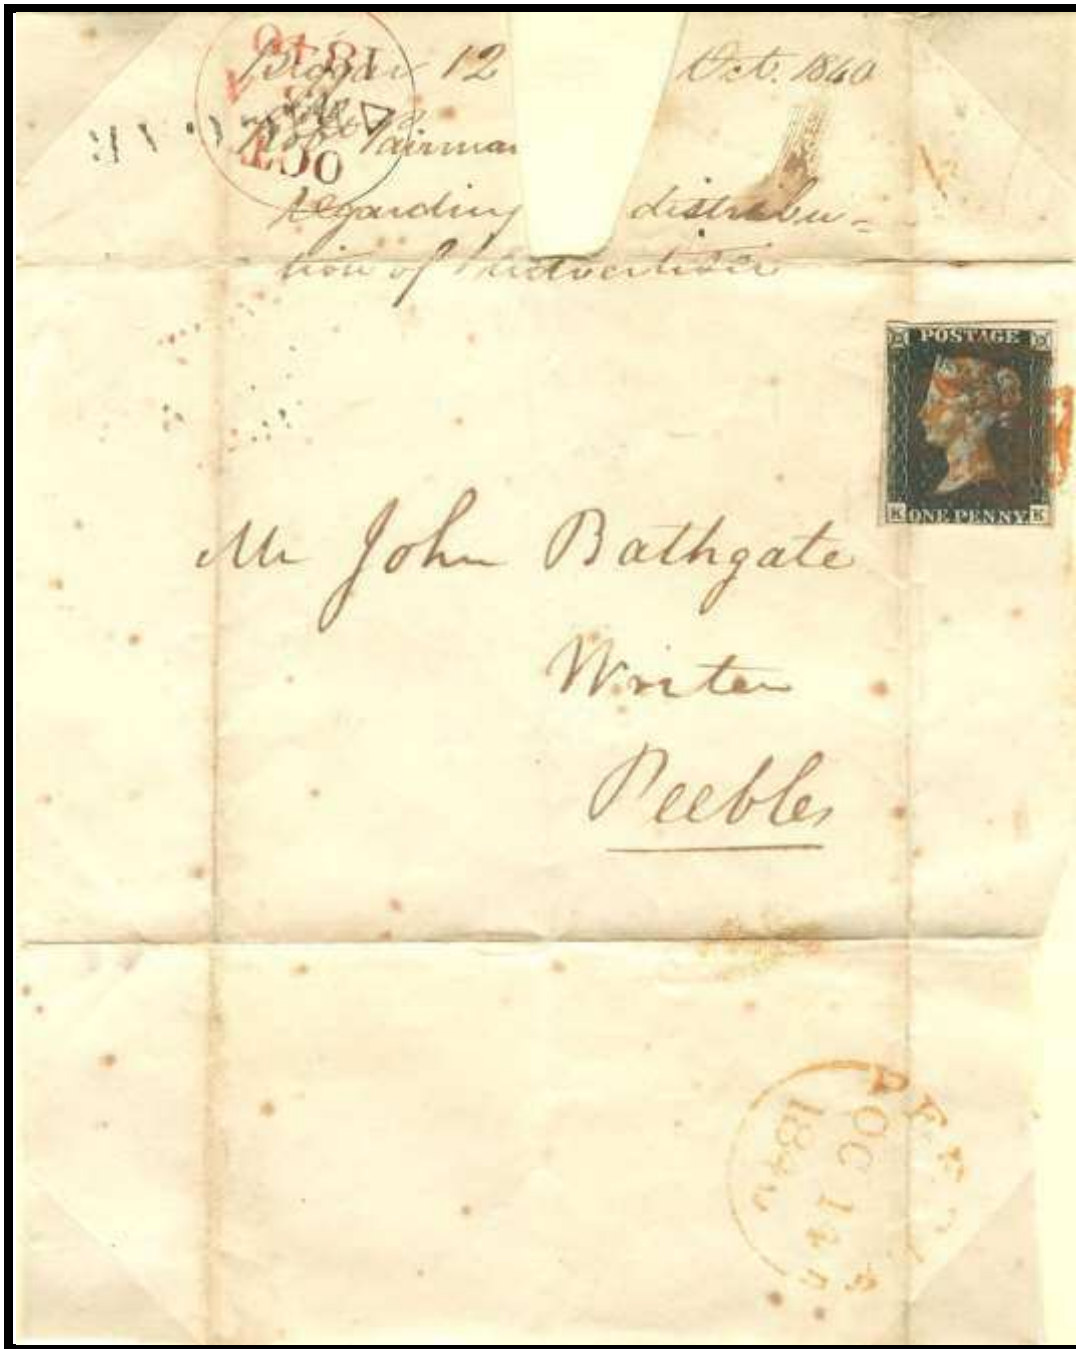 Biggar 12 Oct. 1840
Robt Pairman
regarding distribu-
tion of Advertiser
OCT
POSTAGE
K ONE PENNY K
Mr John Bathgate
Writer
Peebles
OC 14
1840